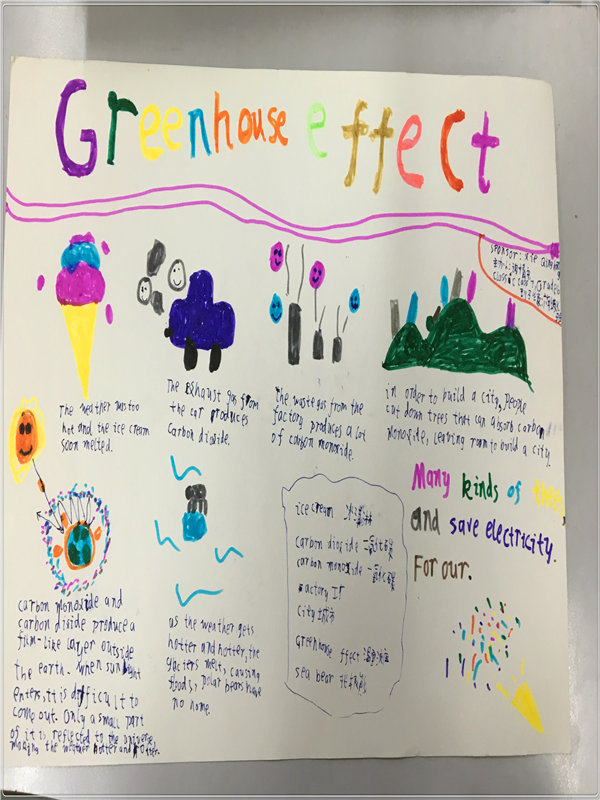 Greenhouse effect
sponsor: xie
class
The weather was too
hot and the ice cream
soon melted.
The exhaust gas from
the car produces
Carbon dioxide.
The waste gas from the
factory produces a lot
of carbon monoxide.
in order to build a city, people
cut down trees that can absorb carbon
monoxide, leaving room to build a city.
Many kinds of
and save electricity.
For our.
ice cream
carbon dioxide 二氧化碳
carbon monoxide 一氧化碳
Factory 工厂
City 城市
Greenhouse effect 温室效应
sea bear 北极熊
carbon monoxide and
carbon dioxide produce a
film-like layer outside
the earth. when sunlight
enters, it is difficult to
come out. Only a small part
of it is reflected to the universe,
making the weather hotter and hotter.
as the weather gets
hotter and hotter, the
glaciers melt, causing
floods, polar bears have
no home.